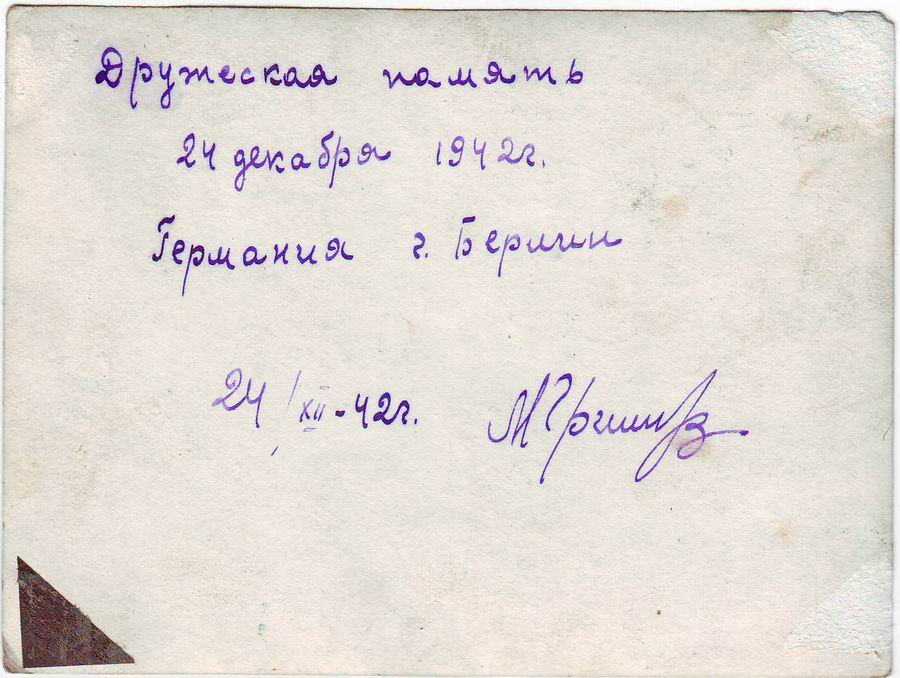 Дружеская память
24 декабря 1942г.
Германия г. Берлин
24/XII-42г.